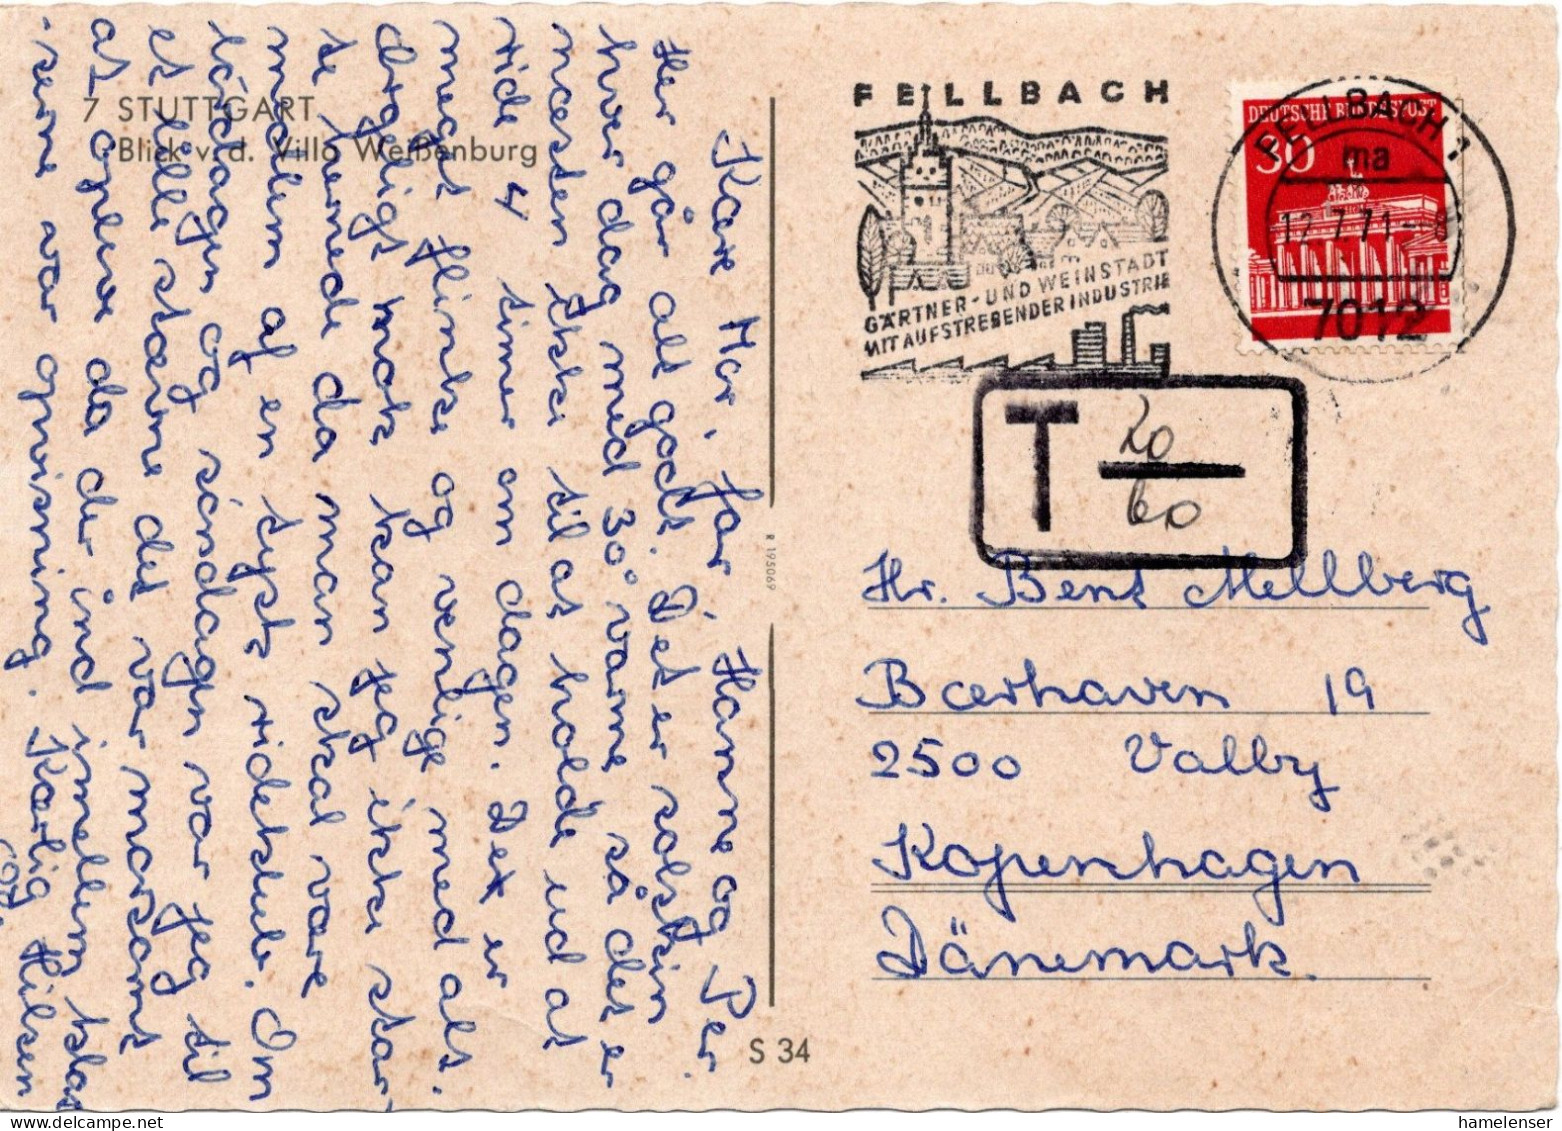 7 STUTTGART
Blick v. d. Villa Weißenburg
Kære Mor, far, Hanne og Per.
Her går alt godt. Det er solskin
hver dag med 30° varme så det er
næsten ikke til at holde ud at
ride 4 timer om dagen. Det er
meget flinke og venlige med als.
dyrligt mak kan jeg ikke star-
te hernede da man skal være
medlem af en tysk rideklub. Om
lördagen og söndagen var jeg til
et lille stævne det var morsomt
at opleve da der ind imellem klas
serne var opvisning. Kærlig Hilsen
R 195069
S 34
FELLBACH
GÄRTNER- UND WEINSTADT
MIT AUFSTREBENDER INDUSTRIE
DEUTSCHE BUNDESPOST
30
FELLBACH 1
ma
12.7.71-8
7012
T 20
60
Hr. Bent Mellberg
Bærhaven 19
2500 Valby
Kopenhagen
Dänemark.